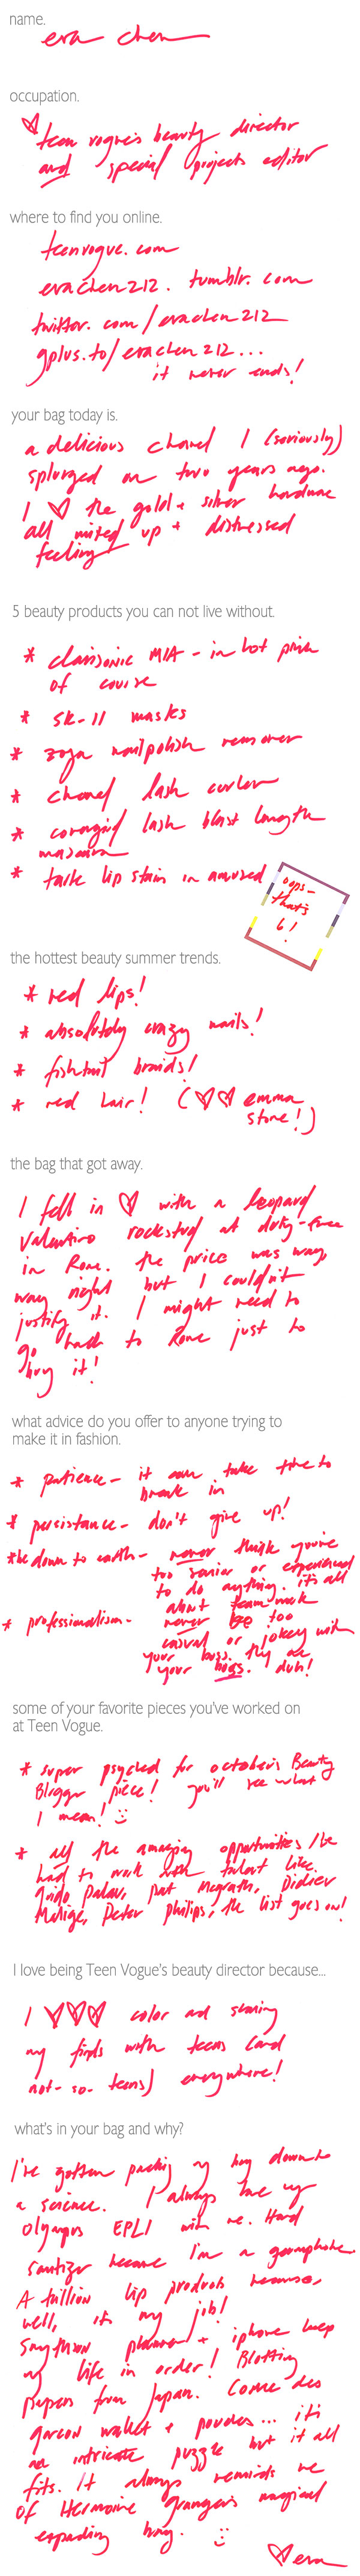 name.
eva chen
occupation.
♡ teen vogue's beauty director
and special projects editor
where to find you online.
teenvogue.com
evachen212.tumblr.com
twitter.com/evachen212
gplus.to/evachen212...
it never ends!
your bag today is.
a delicious chanel I (seriously)
splurged on two years ago.
I ♡ the gold + silver hardware
all mixed up + distressed
feeling
5 beauty products you can not live without.
* clarisonic MIA - in hot pink
of course
* SK-II masks
* zoya nailpolish remover
* chanel lash curler
* covergirl lash blast length
mascara
* tarte lip stain in amused
oops-
that's
6!
the hottest beauty summer trends.
* red lips!
* absolutely crazy nails!
* fishtail braids!
* red hair! (♡♡ emma
stone!)
the bag that got away.
I fell in ♡ with a leopard
Valentino rockstud at duty-free
in Rome. the price was way,
way right but I couldn't
justify it. I might need to
go back to Rome just to
buy it!
what advice do you offer to anyone trying to
make it in fashion.
* patience - it can take time to
break in
* persistance - don't give up!
* be down to earth - never think you're
too senior or experienced
to do anything. it's all
about team work
* professionalism - never be too
casual or jokey with
your boss. they are
your boss. duh!
some of your favorite pieces you've worked on
at Teen Vogue.
* super psyched for october's Beauty
Blogger piece! you'll see what
I mean! :)
* all the amazing opportunities I've
had to work with talent like
Guido Palau, Pat Mcgrath, Didier
Malige, Peter Philips, the list goes on!
I love being Teen Vogue's beauty director because...
I ♡♡♡ color and sharing
my finds with teens (and
not-so-teens) everywhere!
what's in your bag and why?
I've gotten packing my bag down to
a science. I always have my
Olympus EPL1 with me. Hand
sanitizer because I'm a germaphobe.
A trillion lip products because,
well, it's my job!
Smythson planner + iphone keep
my life in order! Blotting
papers from Japan. Comme des
garcon wallet + pouches... it's
an intricate puzzle but it all
fits. It always reminds me
of Hermoine Granger's magical
expanding bag. :)
♡ eva